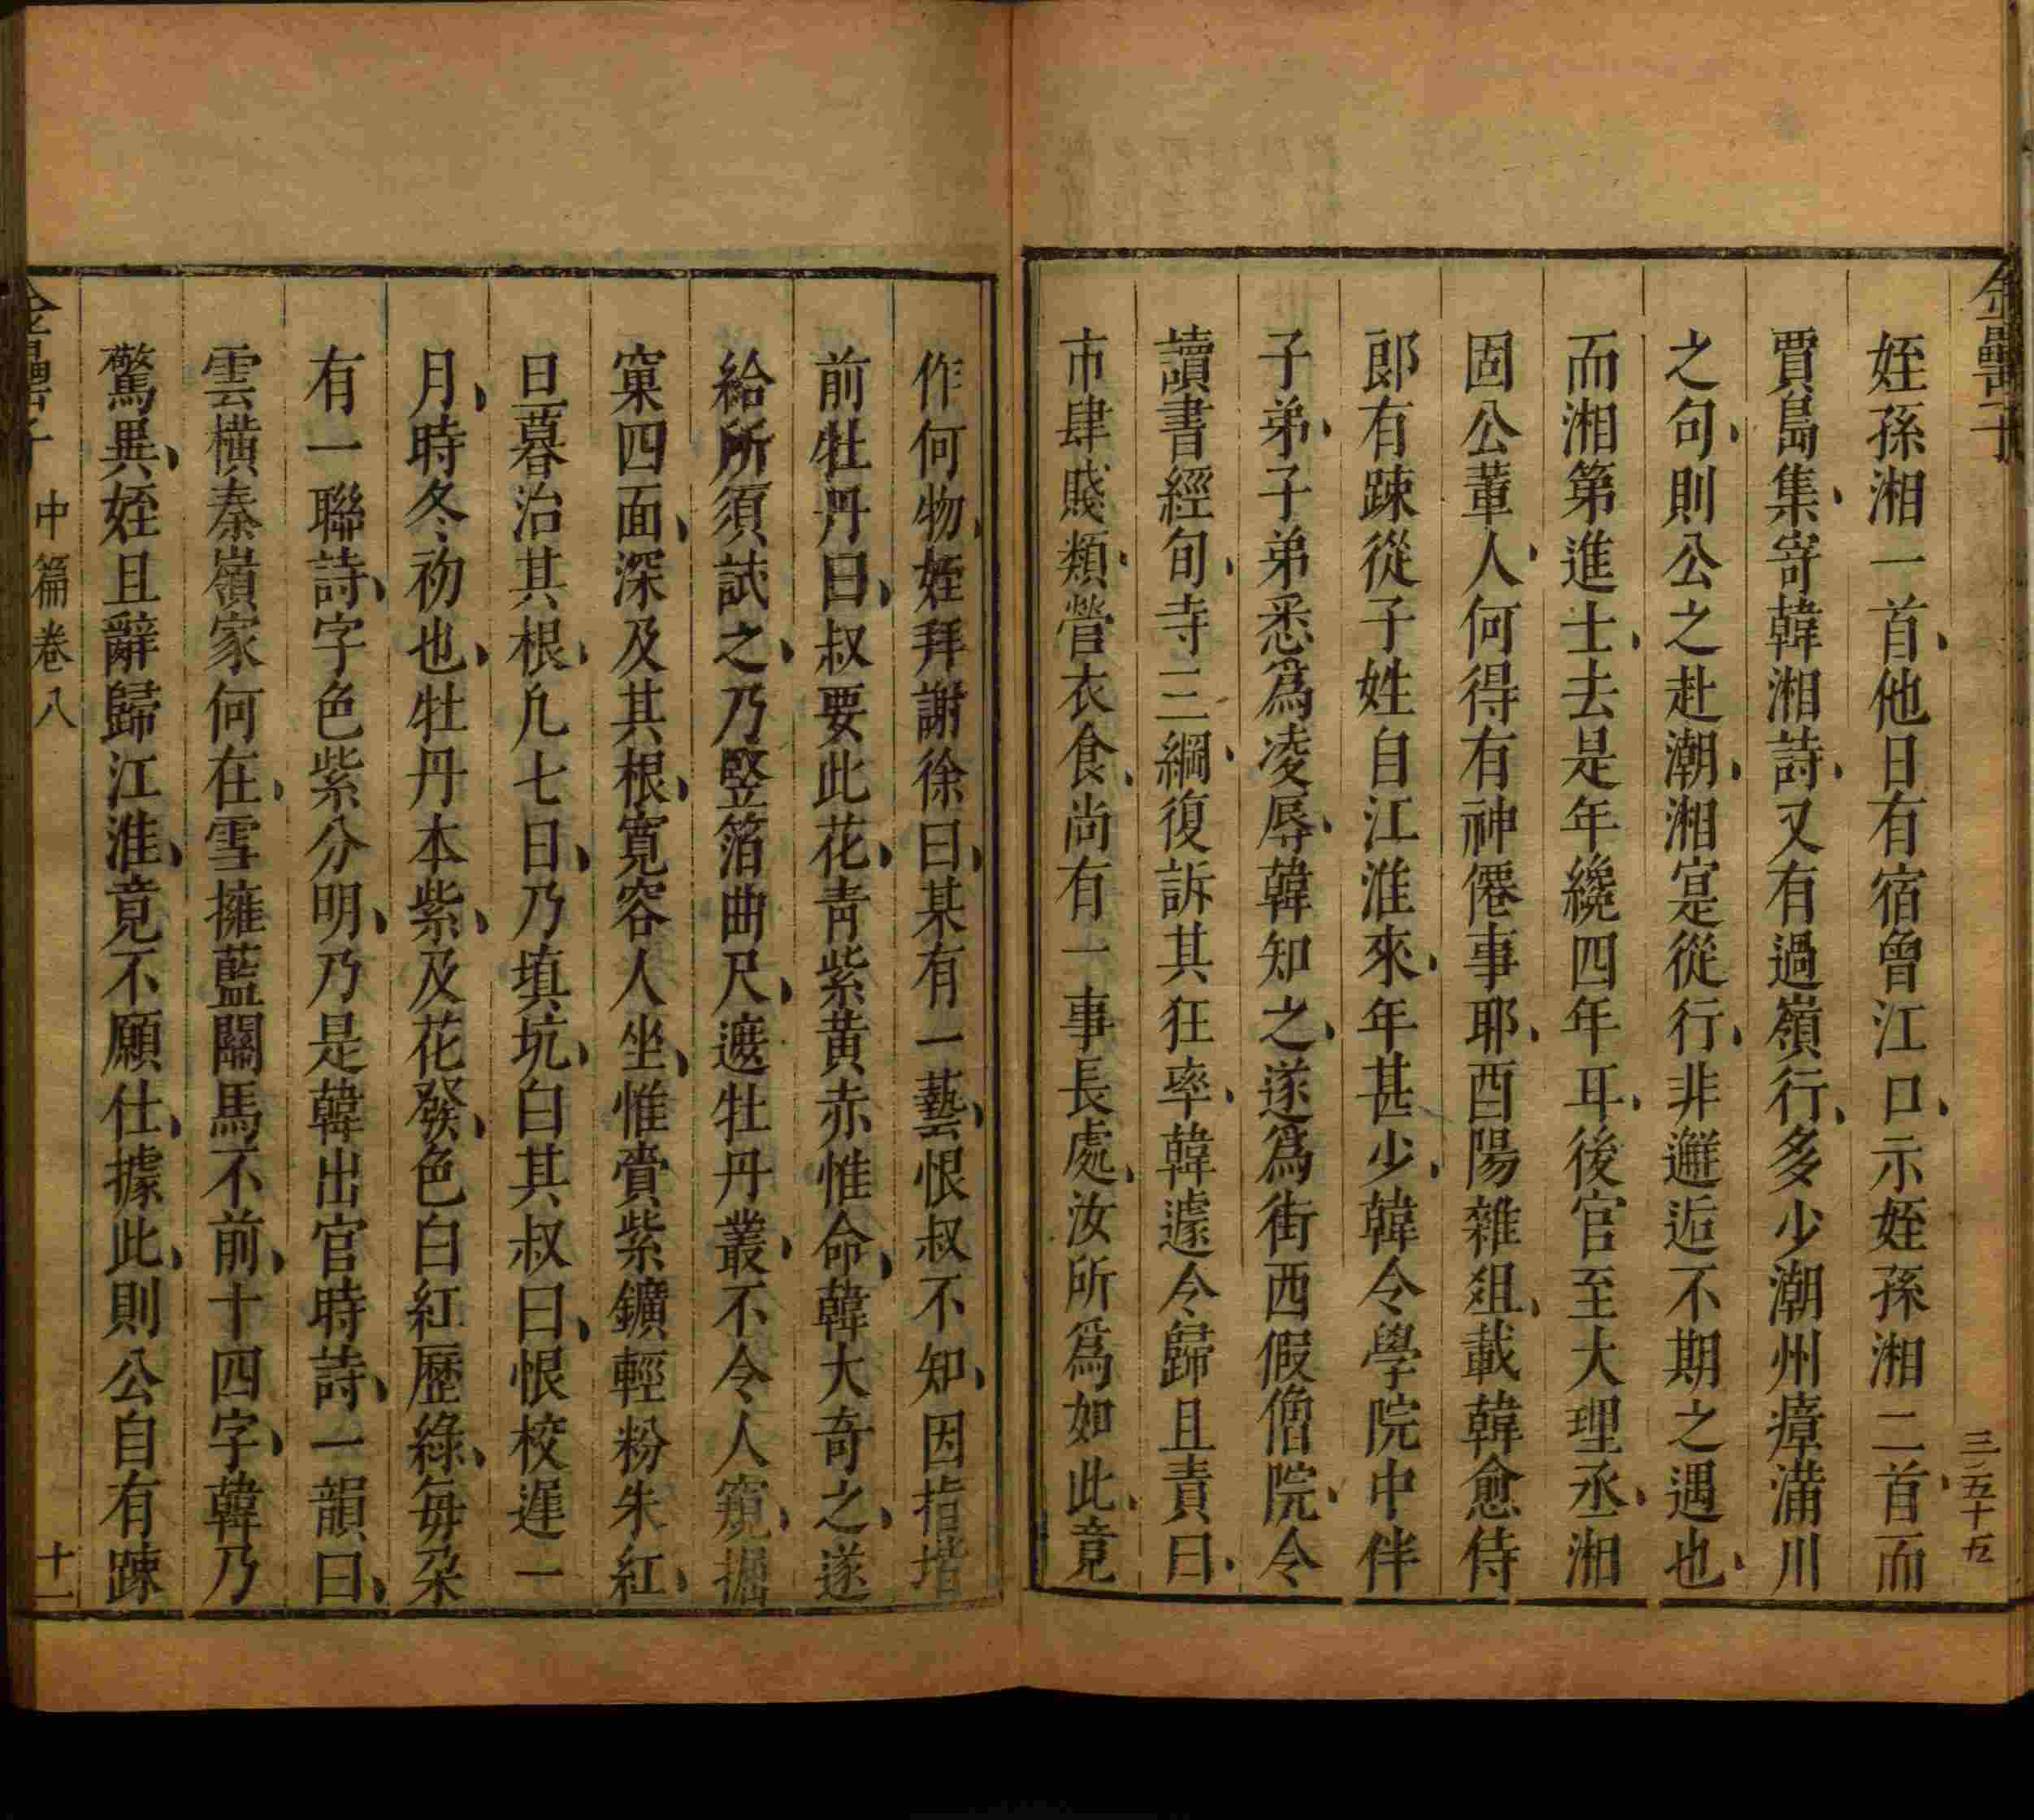 金罍子
三五十五
姪孫湘一首、他日有宿曾江口、示姪孫湘二首、而
賈島集、寄韓湘詩、又有過嶺行、多少潮州瘴滿川
之句、則公之赴潮、湘寔從行、非邂逅不期之遇也、
而湘第進士、去是年纔四年耳、後官至大理丞、湘
固公輩人、何得有神僊事耶、酉陽雜俎、載韓愈侍
郎有踈從子姓自江淮來、年甚少、韓令學院中伴
子弟、子弟悉爲凌辱、韓知之、遂爲街西假僧院、令
讀書經旬、寺三綱、復訴其狂率、韓遽令歸且責曰、
市肆賤類、營衣食、尚有一事長處、汝所爲如此、竟
作何物、姪拜謝徐曰、某有一藝、恨叔不知、因指堦
前牡丹曰、叔要此花、青紫黃赤惟命、韓大奇之、遂
給所須試之、乃竪箔曲尺、遮牡丹叢、不令人窺、掘
窠四面、深及其根、寬容人坐、惟賫紫鑛輕粉朱紅、
旦暮治其根、凢七日、乃填坑、白其叔曰、恨校遲一
月、時冬初也、牡丹本紫、及花發、色白紅歷綠、每朶
有一聯詩、字色紫分明、乃是韓出官時詩、一韻曰、
雲橫秦嶺家何在、雪擁藍關馬不前、十四字、韓乃
驚異、姪且辭歸江淮、竟不願仕、據此、則公自有踈
金罍子
中篇卷八
十一